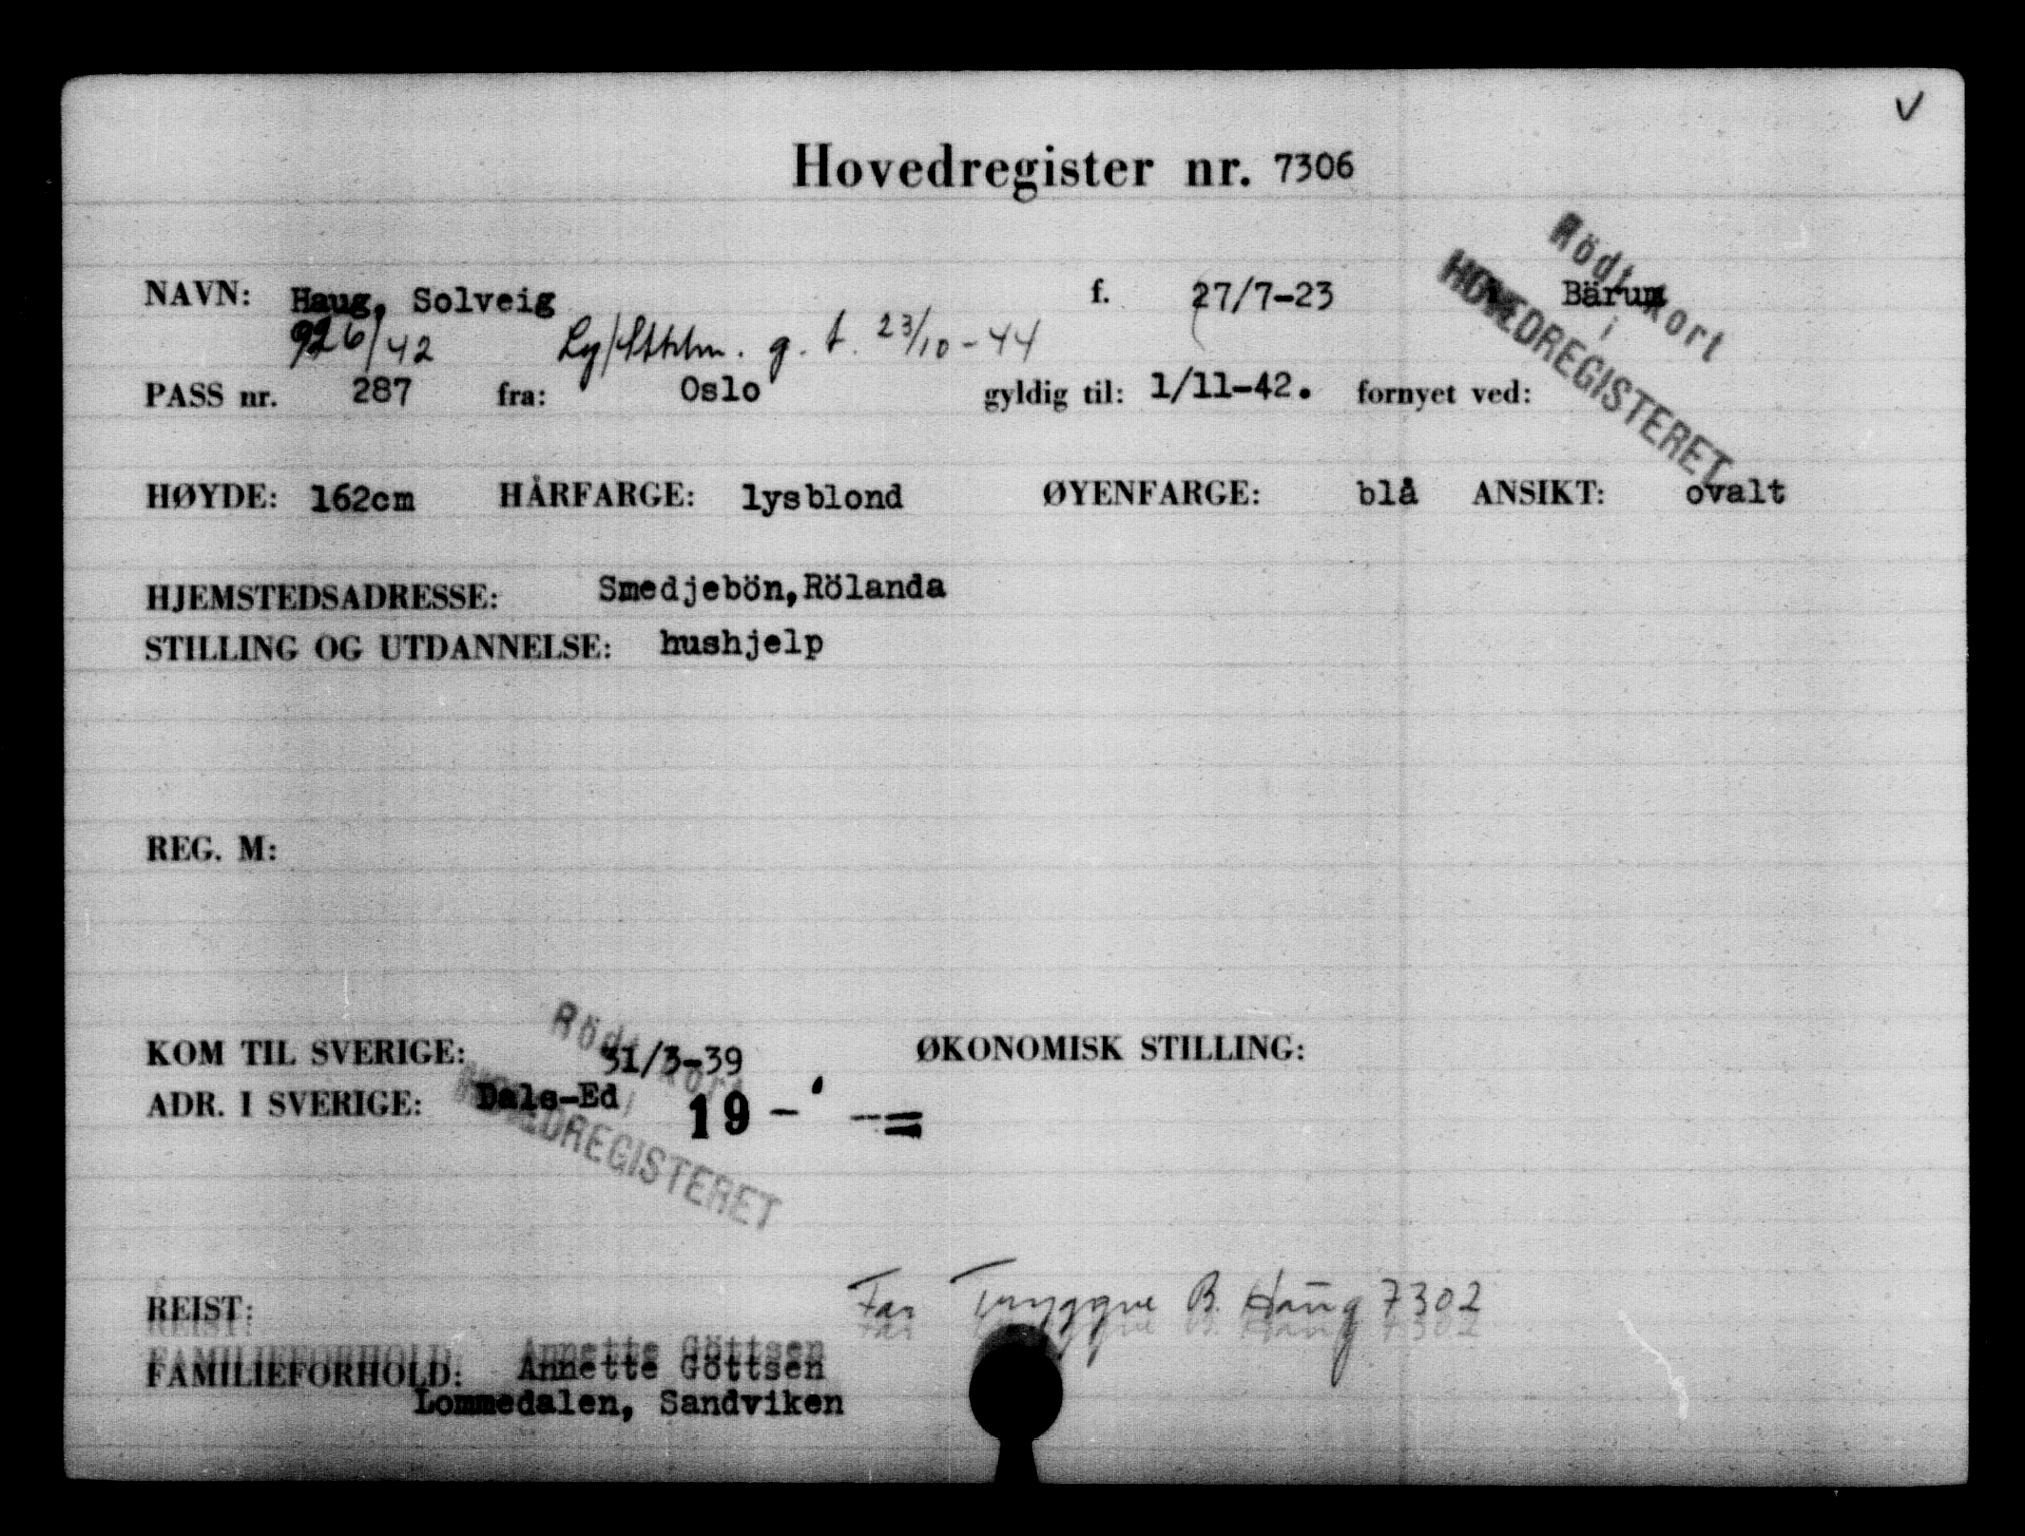 V
Hovedregister nr. 7306
Rödt kort
i
HOVEDREGISTERET
NAVN: Haug, Solveig f. 27/7-23 Bärum
926/42 Ly/Stklm. g. t. 23/10-44
PASS nr. 287 fra: Oslo gyldig til: 1/11-42. fornyet ved:
HØYDE: 162cm HÅRFARGE: lysblond ØYENFARGE: blå ANSIKT: ovalt
HJEMSTEDSADRESSE: Smedjebön,Rölanda
STILLING OG UTDANNELSE: hushjelp
REG. M:
Rödt kort
i
HOVEDREGISTERET
KOM TIL SVERIGE: 31/3-39 ØKONOMISK STILLING:
ADR. I SVERIGE: Dals-Ed 19 - ' -=
REIST: Far Tryggve B. Haug 7302
FAMILIEFORHOLD: Annette Göttsen
Lommedalen, Sandviken